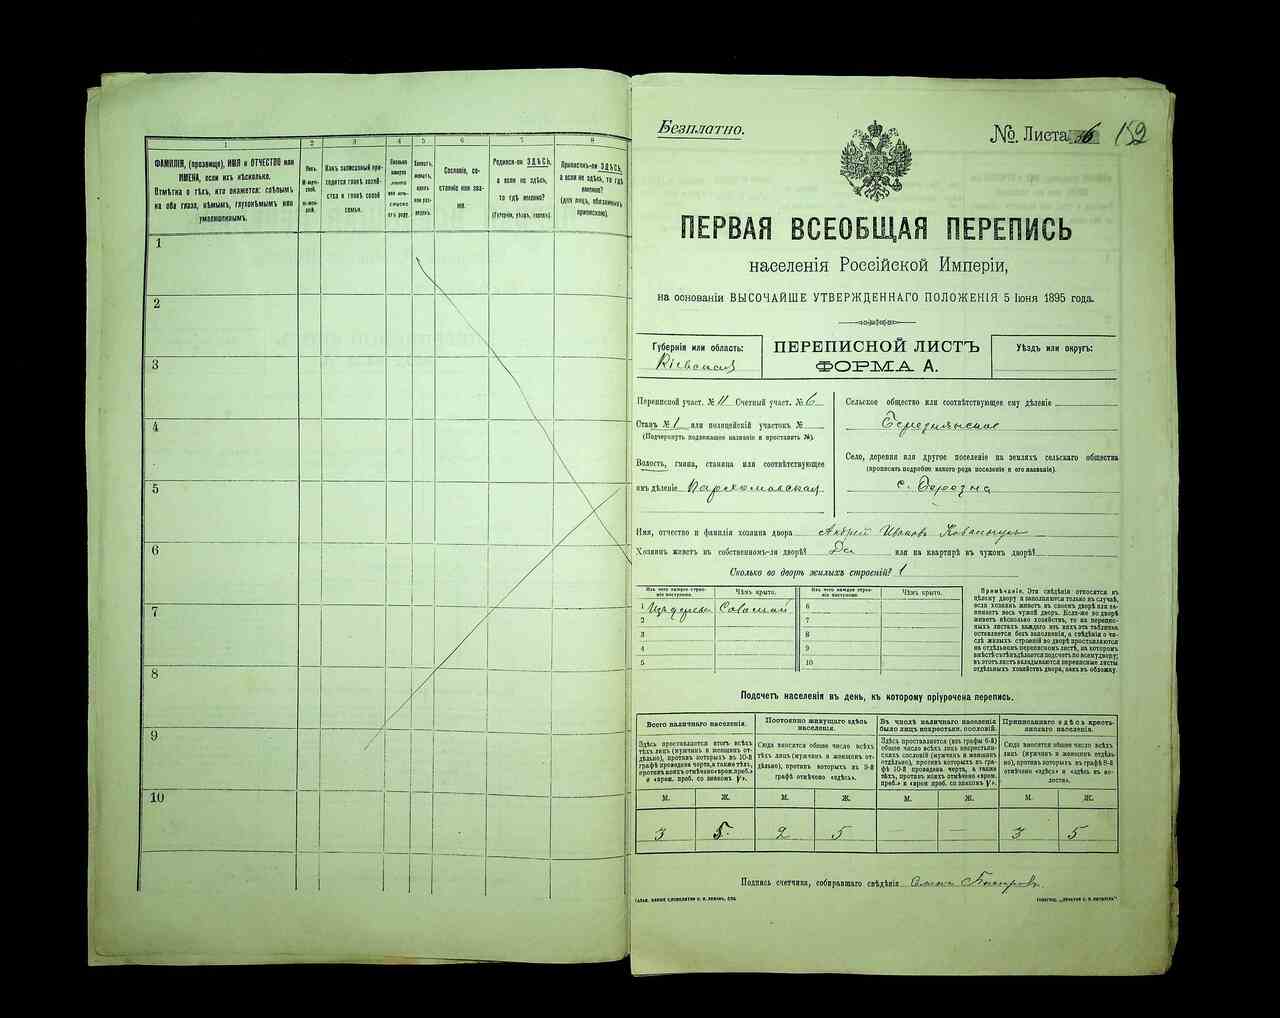 1
2
3
4
5
6
7
8
ФАМИЛІЯ, (прозвище), ИМЯ и ОТЧЕСТВО или
ИМЕНА, если ихъ нѣсколько.
Отмѣтка о тѣхъ, кто окажется: слѣпымъ
на оба глаза, нѣмымъ, глухонѣмымъ или
умалишеннымъ.
Полъ.
М-муж-
ской.
Ж-жен-
скій.
Какъ записанный при-
ходится главѣ хозяй-
ства и главѣ своей
семьи.
Сколько
минуло
лѣтъ
Холостъ,
женатъ,
вдовъ
или раз-
веденъ.
Сословіе, со-
стояніе или зва-
ніе.
Родился-ли ЗДѢСЬ,
а если не здѣсь,
то гдѣ именно?
(Губернія, уѣздъ, городъ).
Приписанъ-ли ЗДѢСЬ,
а если не здѣсь, то гдѣ
именно?
(для лицъ, обязанныхъ
припискою).
1
2
3
4
5
6
7
8
9
10
Безплатно.
№ Листа 6 152
ПЕРВАЯ ВСЕОБЩАЯ ПЕРЕПИСЬ
населенія Россійской Имперіи,
на основаніи ВЫСОЧАЙШЕ УТВЕРЖДЕННАГО ПОЛОЖЕНІЯ 5 Іюня 1895 года.
Губернія или область:
Кіевская
ПЕРЕПИСНОЙ ЛИСТЪ
ФОРМА А.
Уѣздъ или округъ:
Переписной участ. № 11 Счетный участ. № 6
Станъ № 1 или полицейскій участокъ №
(Подчеркнуть подлежащее названіе и проставить №).
Волость, гмина, станица или соотвѣтствующее
имъ дѣленіе Пархомовская
Сельское общество или соотвѣтствующее ему дѣленіе
Березнянское
Село, деревня или другое поселеніе на земляхъ сельскаго общества
(прописать подробно какого рода поселеніе и его названіе).
с. Березна
Имя, отчество и фамилія хозяина двора Андрей Ивановъ
Хозяинъ живетъ въ собственномъ-ли дворѣ? Да или на квартирѣ въ чужомъ дворѣ?
Сколько во дворѣ жилыхъ строеній? 1
Изъ чего каждое строе-
ніе построено.
Чѣмъ крыто.
Изъ чего каждое строе-
ніе построено.
Чѣмъ крыто.
1 Изъ дерева Соломой
2
3
4
5
6
7
8
9
10
Примѣчаніе. Эти свѣдѣнія относятся къ
цѣлому двору и заполняются только въ случаѣ,
если хозяинъ живетъ въ своемъ дворѣ или за-
нимаетъ весь чужой дворъ. Если-же во дворѣ
живетъ нѣсколько хозяйствъ, то на перепис-
ныхъ листахъ каждаго изъ нихъ эта табличка
оставляется безъ заполненія, а свѣдѣнія о чи-
слѣ жилыхъ строеній во дворѣ проставляются
на отдѣльномъ переписномъ листѣ, на которомъ
вмѣстѣ съ тѣмъ дѣлается подсчетъ по всему двору;
въ этотъ листъ вкладываются переписные листы
отдѣльныхъ хозяйствъ двора, какъ въ обложку.
Подсчетъ населенія въ день, къ которому пріурочена перепись.
Всего наличнаго населенія.
Здѣсь проставляется итогъ всѣхъ
тѣхъ лицъ (мужчинъ и женщинъ от-
дѣльно), противъ которыхъ въ 10-й
графѣ проведена черта, а также тѣхъ,
противъ коихъ отмѣчено «врем. преб.»
и «врем. проб. со знакомъ V».
Постоянно живущаго здѣсь
населенія.
Сюда вносится общее число всѣхъ
тѣхъ лицъ (мужчинъ и женщинъ от-
дѣльно), противъ которыхъ въ 9-й
графѣ отмѣчено «здѣсь».
Въ числѣ наличнаго населенія
было лицъ некрестьян. сословій.
Здѣсь проставляется (изъ графы 6-й)
общее число всѣхъ лицъ некрестьян-
скихъ сословій (мужчинъ и женщинъ
отдѣльно), противъ которыхъ въ гра-
фѣ 10-й проведена черта, а также
тѣхъ, противъ коихъ отмѣчено «врем.
преб.» и «врем. преб. со знакомъ V».
Приписаннаго здѣсь кресть-
янскаго населенія.
Сюда вносится общее число всѣхъ
лицъ (мужчинъ и женщинъ отдѣль-
но), противъ которыхъ въ графѣ 8-й
отмѣчено «здѣсь» и «здѣсь въ во-
лости».
М. Ж. М. Ж. М. Ж. М. Ж.
3 5 2 5 — — 3 5
Подпись счетчика, собиравшаго свѣдѣнія